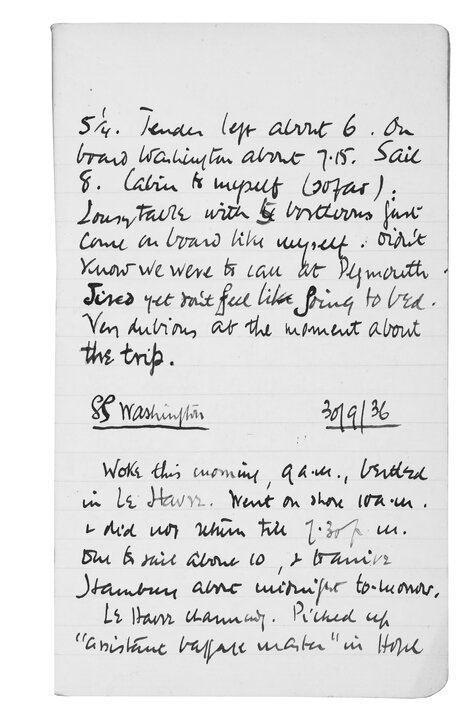 5¼. Tender left about 6. On
board Washington about 7.15. Sail
8. Cabin to myself (so far).
Lousy table with just
come on board like myself. Didn't
know we were to call at Plymouth.
Tired yet don't feel like going to bed.
Very dubious at the moment about
the trip.
SS Washington 30/9/36
Woke this morning, 9 a.m., berthed
in Le Havre. Went on shore 10 a.m.
& did not return till 7.30 p.m.
Due to sail about 10, & to arrive
Hamburg about midnight to-morrow.
Le Havre charming. Picked up
"assistant baggage master" in Hotel